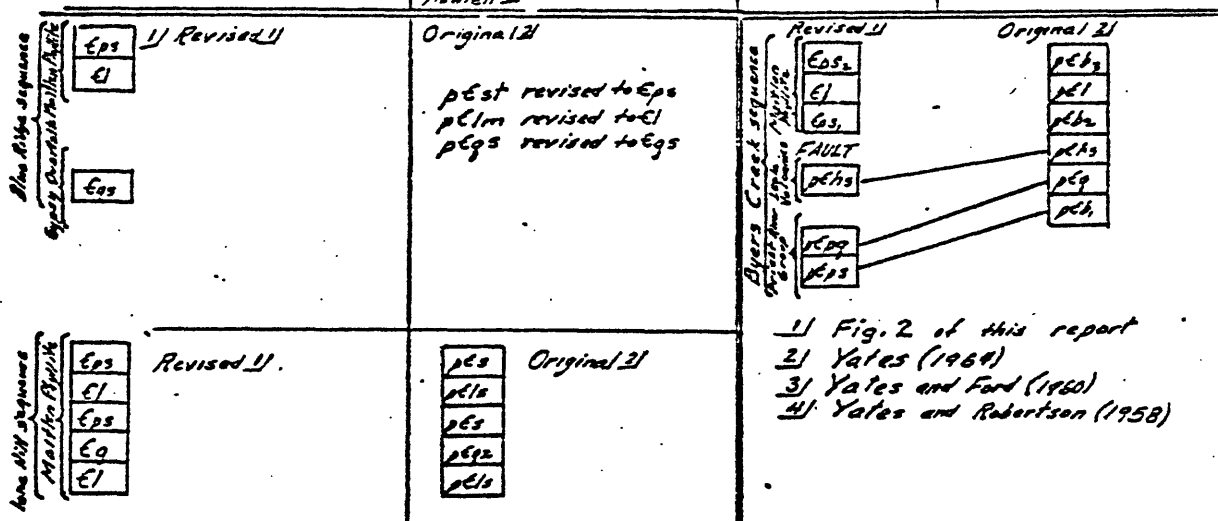 Blue Ridge sequence
Gypsy Quartzite
Maitlen Phyllite
Єps
Єl
Єqs
1/ Revised 1/
Original 2/
pЄst revised to Єps
pЄlm revised to Єl
pЄqs revised to Єqs
Byers Creek sequence
Revised 1/
Єl
FAULT
pЄhs
Group
pЄpq
pЄps
Original 2/
pЄb3
pЄl
pЄb2
pЄhs
pЄq
pЄb1
sequence
Maitlen Phyllite
Єps
Єl
Єps
Єq
Єl
Revised 1/.
pЄs
pЄls
pЄs
pЄqz
pЄls
Original 2/
1/ Fig. 2 of this report
2/ Yates (1964)
3/ Yates and Ford (1960)
4/ Yates and Robertson (1958)